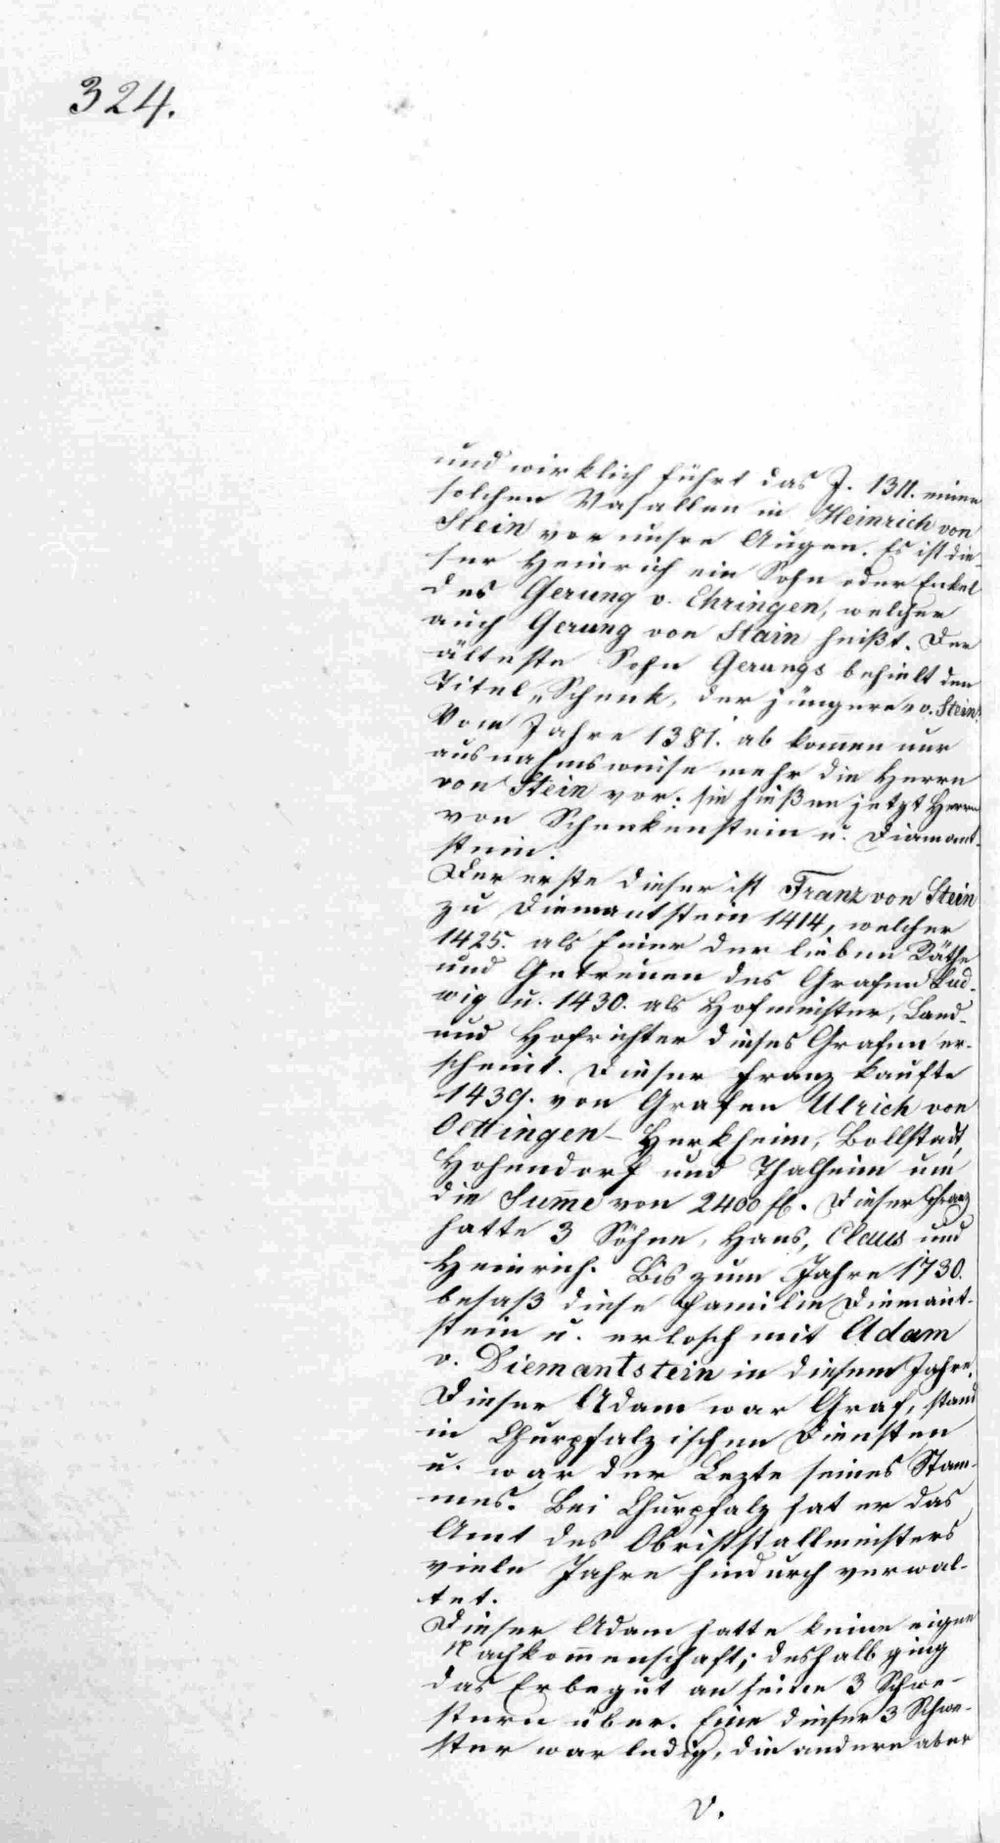 324.
und wirklich führt das J. 1311. einen
solchen Vasallen in Heinrich von
Stein vor unsre Augen. Es ist die-
ser Heinrich ein Sohn oder Enkel
des Gerung v. Ehringen, welcher
auch Gerung von Stain heißt. Der
älteste Sohn Gerungs behielt den
Titel „Schenk, der jüngere „v. Stein.
Vom Jahre 1381. ab komen nur
ausnahmsweise mehr die Herrn
von Stein vor: sie hießen jetzt Herrn
von Schenkenstein u. Diamant-
stein.
Der erste dieser ist Franz von Stein
zu Diemantstein 1414, welcher
1425. als Einer der lieben Räthe
und Getreuen des Grafen Lud-
wig u. 1430. als Hofmeister, Land-
und Hofrichter dieses Grafen er-
scheint. Dieser Franz kaufte
1439. von Grafen Ulrich von
Oettingen- Herkheim, Bollstadt,
Hohendorf und Thalheim um
die Sume von 2400 fl. Dieser Franz
hatte 3 Söhne, Hans, Claus und
Heinrich. Bis zum Jahre 1730.
besaß diese Familie Diemant-
stein u. erlosch mit Adam
v. Diemantstein in diesem Jahre.
Dieser Adam war Graf, stand
in Churpfalzischen Diensten
u. war der Lezte seines Stam-
mes. Bei Churpfalz hat er das
Amt des Obriststallmeisters
viele Jahre hindurch verwal-
tet.
Dieser Adam hatte keine eigne
Nachkomenschaft; deshalb ging
das Erbegut an seine 3 Schwe-
stern über. Eine dieser 3 Schwe-
ster war ledig, die andere aber
v.